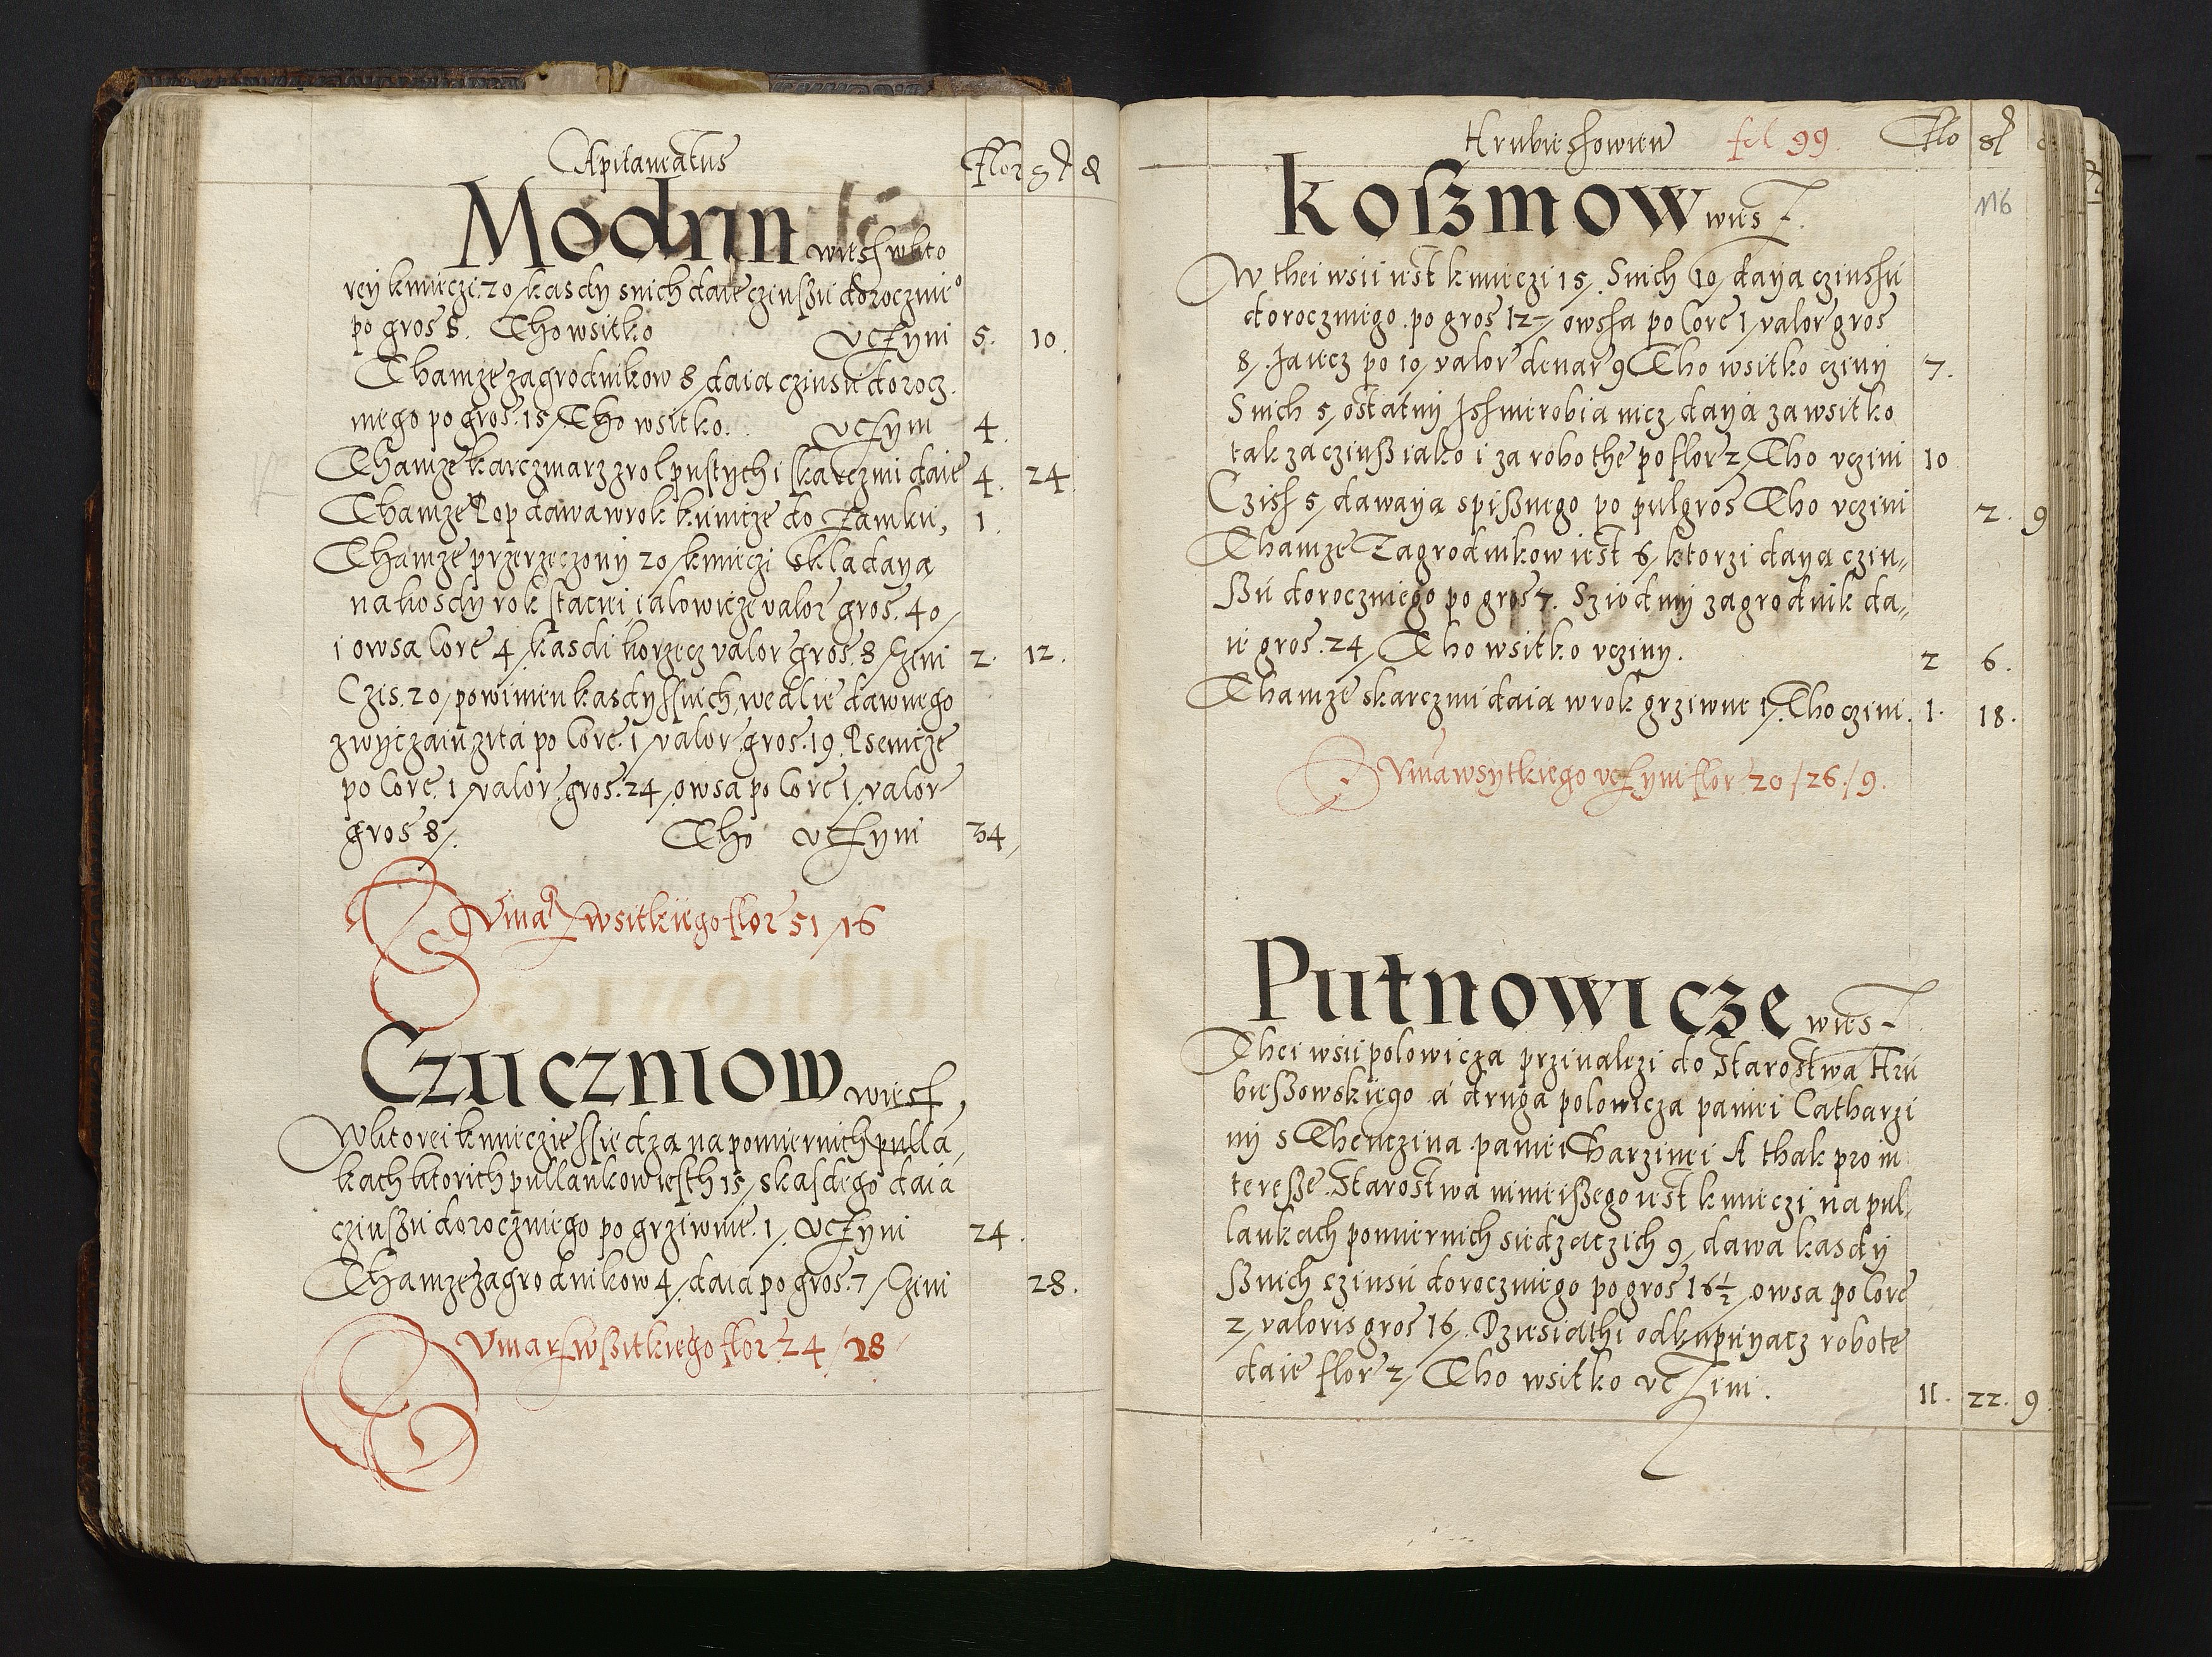 Capitaneatus
Flor gṙ d
Modrin wiesh w kto
rey kmieczi. 20 / kasdy snich daie czinsзu doroczni°
po gros 8. Tho wsitko uczyni 5. 10.
Thamze zagrodnikow 8 / daia czinsu dorocz
niego po gros. 15 / Tho wsitko. uczyni 4.
Thamze karczmarz zrol pustych i skarczmi daie 4. 24.
Thamze Pop dawa w rok kunicze do Zamku, 1.
Thamze przerzeczony 20 / kmieczi skladaya
na kosdy rok staciei, ialowicze valor gros. 40 /
i owsa Core 4 / kasdi korzecz valor gros. 8 / Czini 2. 12.
Czis. 20 / powinien kasdy ssnich, wedlie dawnego
zwyczaiu zita po Core. 1 / valor. gros. 19. Psenicze
po Core. 1 / valor. gros. 24 / owsa po Core 1 / valor
gros 8 /. Tho uczyni 34 /
Suma wsitkiego flor 51 / 16
Czuczniow wiesh,
W ktorei kmieczie ssiedza na pomiernich pulla,
kach ktorich pullankow iesth 15 / skasdego daia
czinszu doroczniego po grziwnie. 1 /. uczyni 24.
Thamze zagrodnikow 4 / daia po gros. 7 / Czini 28.
Suma wszitkiego flor. 24 / 28
Hrubieshowien fol 99. Flo gṙ d
116
Koszmow wies
W thei wsii iest kmieczi 15 /. Snich 10 / daya czinshu
doroczniego. po gros 12 / owsha po Core 1 / valor gros
8 /. Jaiecz po 10 / valor denar 9 Tho wsitko czini 7.
Snich 5 / ostatni ish nierobia nicz daya za wsitko
tak za czinsz iako i za robothe po flor 2 / Tho uczini 10
Czish 5 / dawaya spisznego po pulgros Tho uczini 2. 9
Thamze Zagrodnikow iest 6 / ktorzi daya czin,,
szu doroczniego po gros 7. Sziodmy zagrodnik da,,
ie gros. 24 / Tho wsitko ucziny. 2 6.
Thamze skarczmi daia w rok grziwne 1 /. Tho czini. 1. 18.
Suma wsytkiego uczyni flor. 20 / 26. / 9.
Putnowicze wies
Thei wsii polowicza przinalezi do Starostwa Hru
bieszowskiego a druga polowicza paniei Catharzi
ny s Thenczina paniei Charzinei A thak pro in
teresze Starostwa ninieiszego iest kmieczi na pul,
lankach pomiernich siedzaczich 9 / dawa kasdy
sznich czinsu doroczniego po gros 16½ / owsa po Core
2 / valoris gros 16 /. Dziesiathi odkupuyacz robote
daie flor 2 / Tho wsitko uczini. 11. 22. 9.